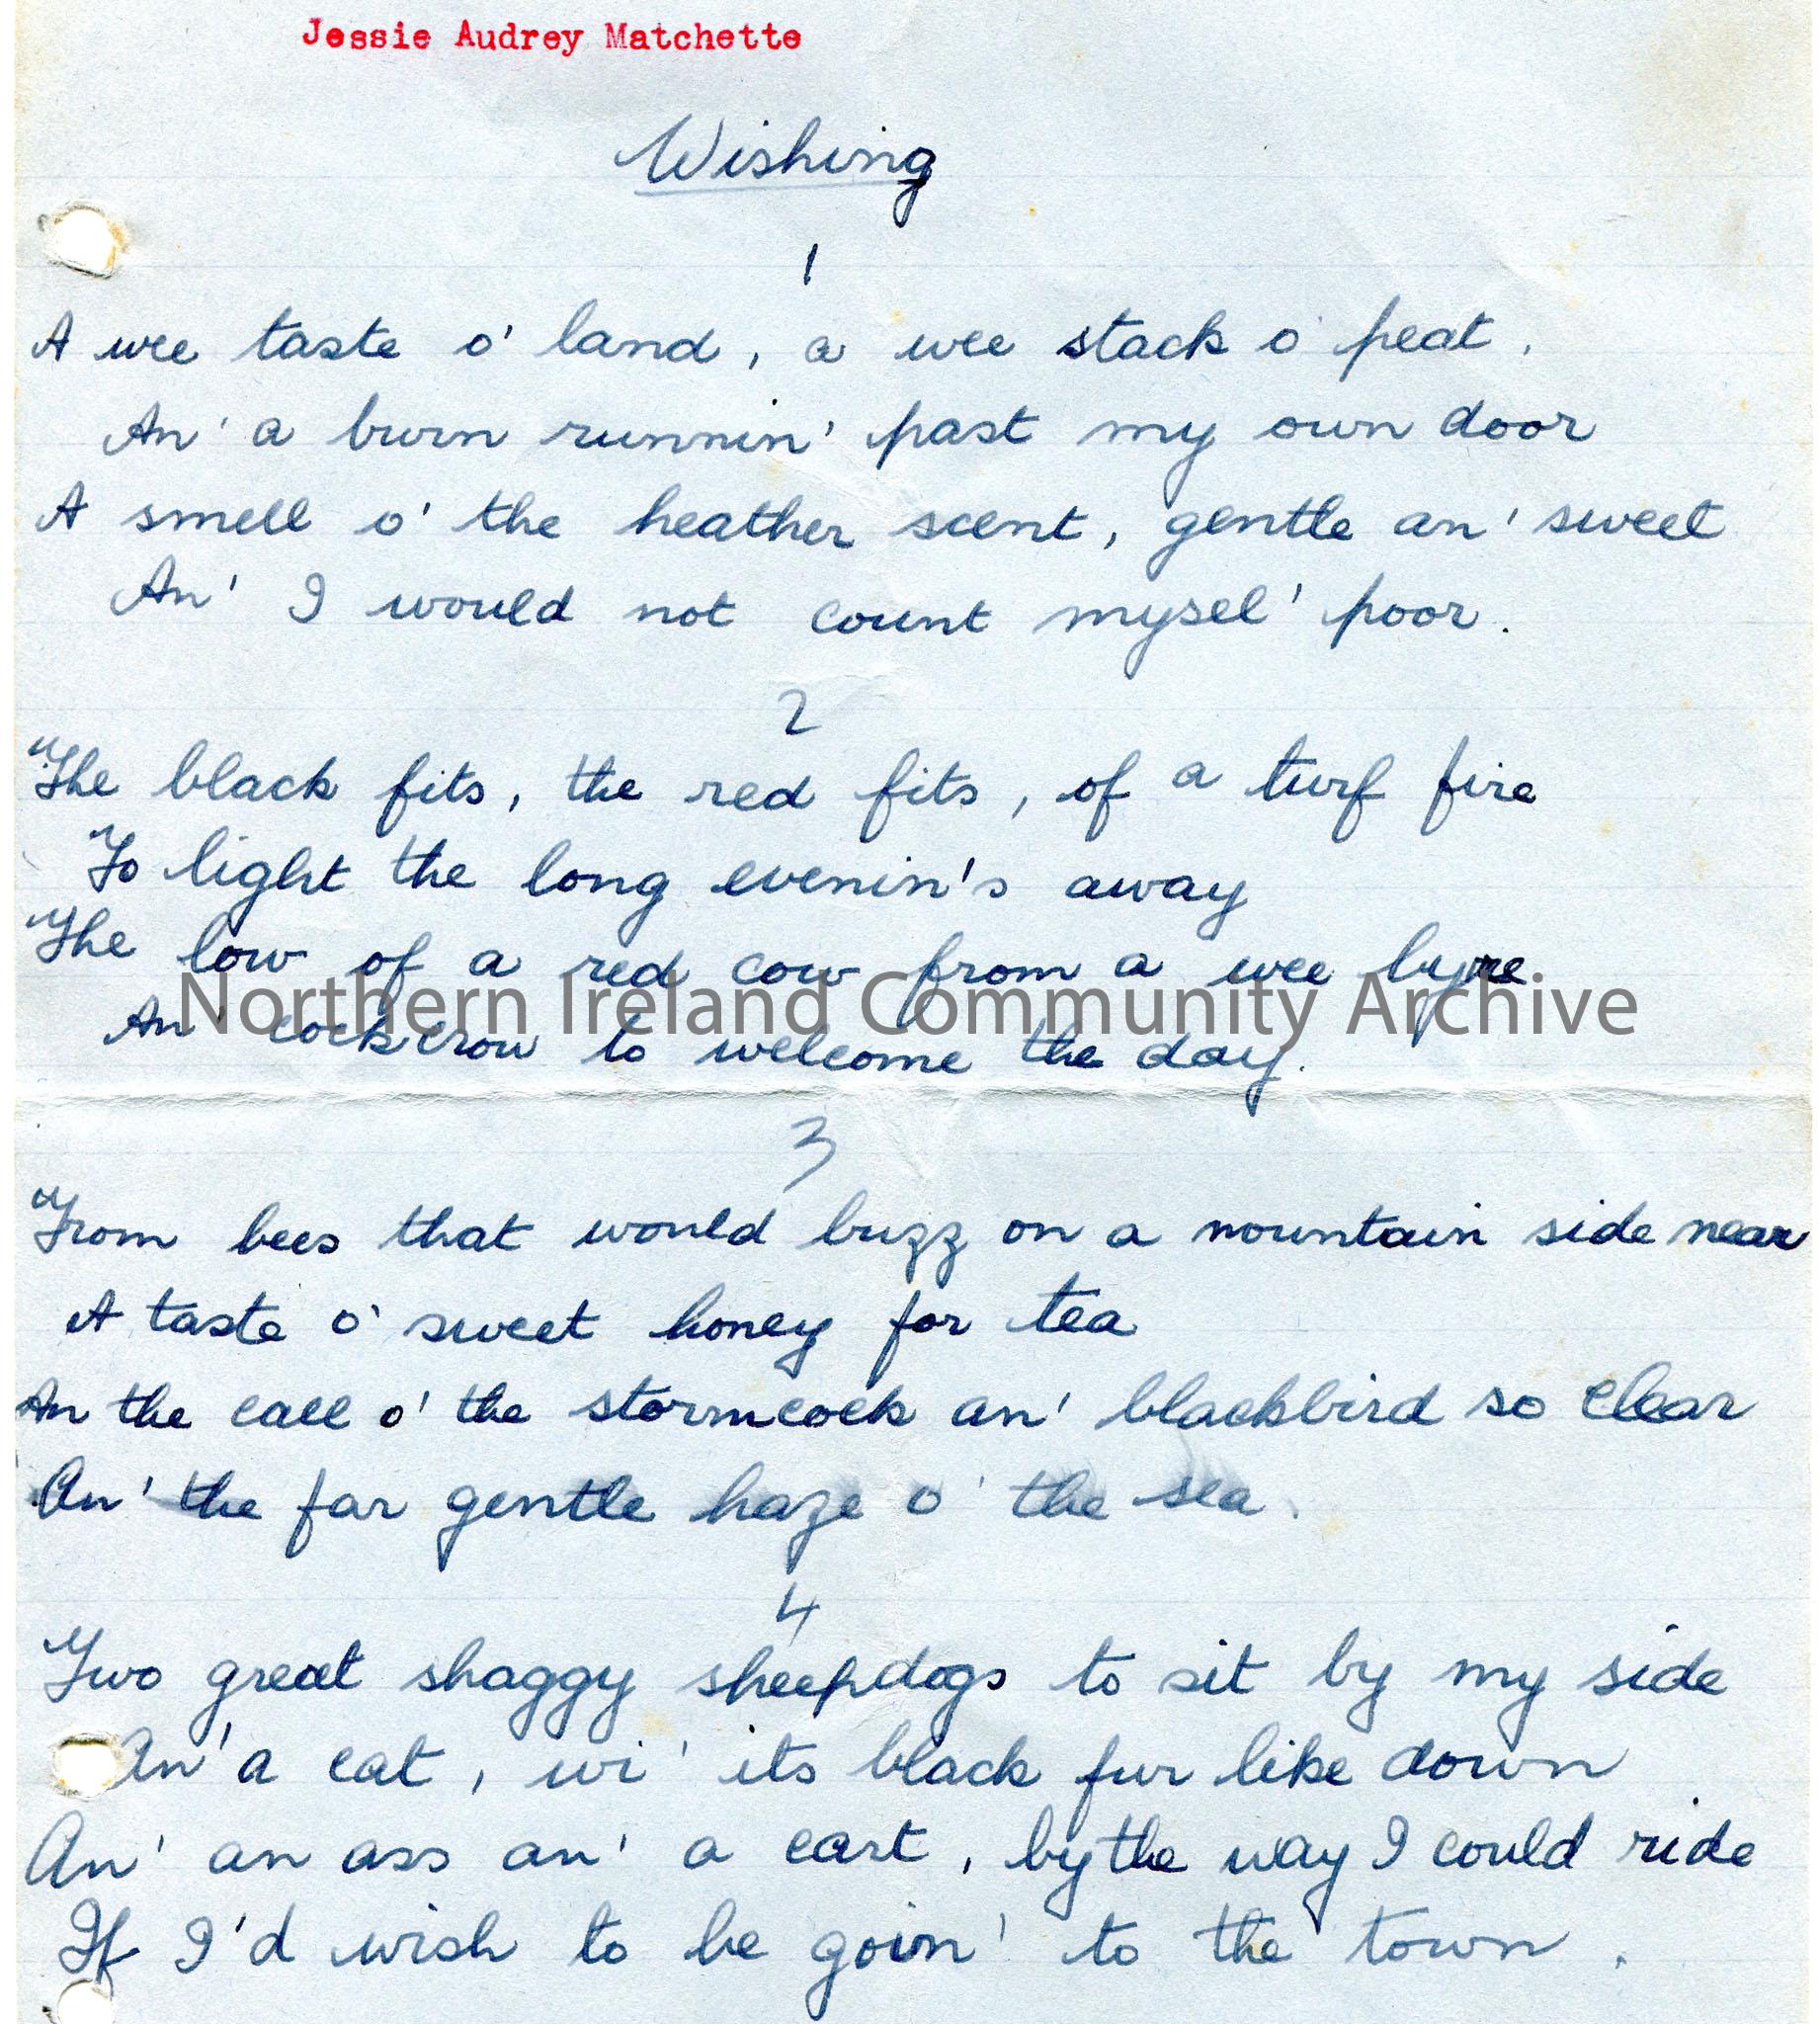 Jessie Audrey Matchette
Wishing
1
A wee taste o' land, a wee stack o' peat,
An' a burn runnin' past my own door
A smell o' the heather scent, gentle an' sweet
An' I would not count mysel' poor.
2
The black fits, the red fits, of a turf fire
To light the long evenin's away
The low of a red cow from a wee byre
An' cockcrow to welcome the day.
Northern Ireland Community Archive
3
From bees that would buzz on a mountain side near
A taste o' sweet honey for tea
An the call o' the stormcock an' blackbird so clear
An' the far gentle haze o' the sea.
4
Two great shaggy sheepdogs to sit by my side
An' a cat, wi' its black fur like down
An' an ass an' a cart, by the way I could ride
If I'd wish to be goin' to the town.